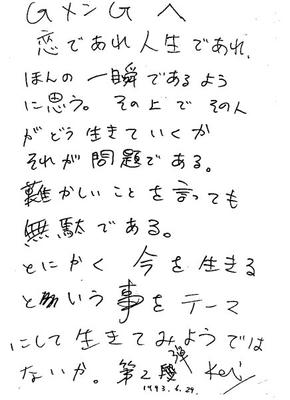 GメンG へ
恋であれ人生であれ、
ほんの一瞬であるよう
に思う。その上でその人
がどう生きていくか
それが問題である。
難かしいことを言っても
無駄である。
とにかく 今を生きる
という事をテーマ
にして生きてみようでは
ないか。第2弾
1993.6.29.